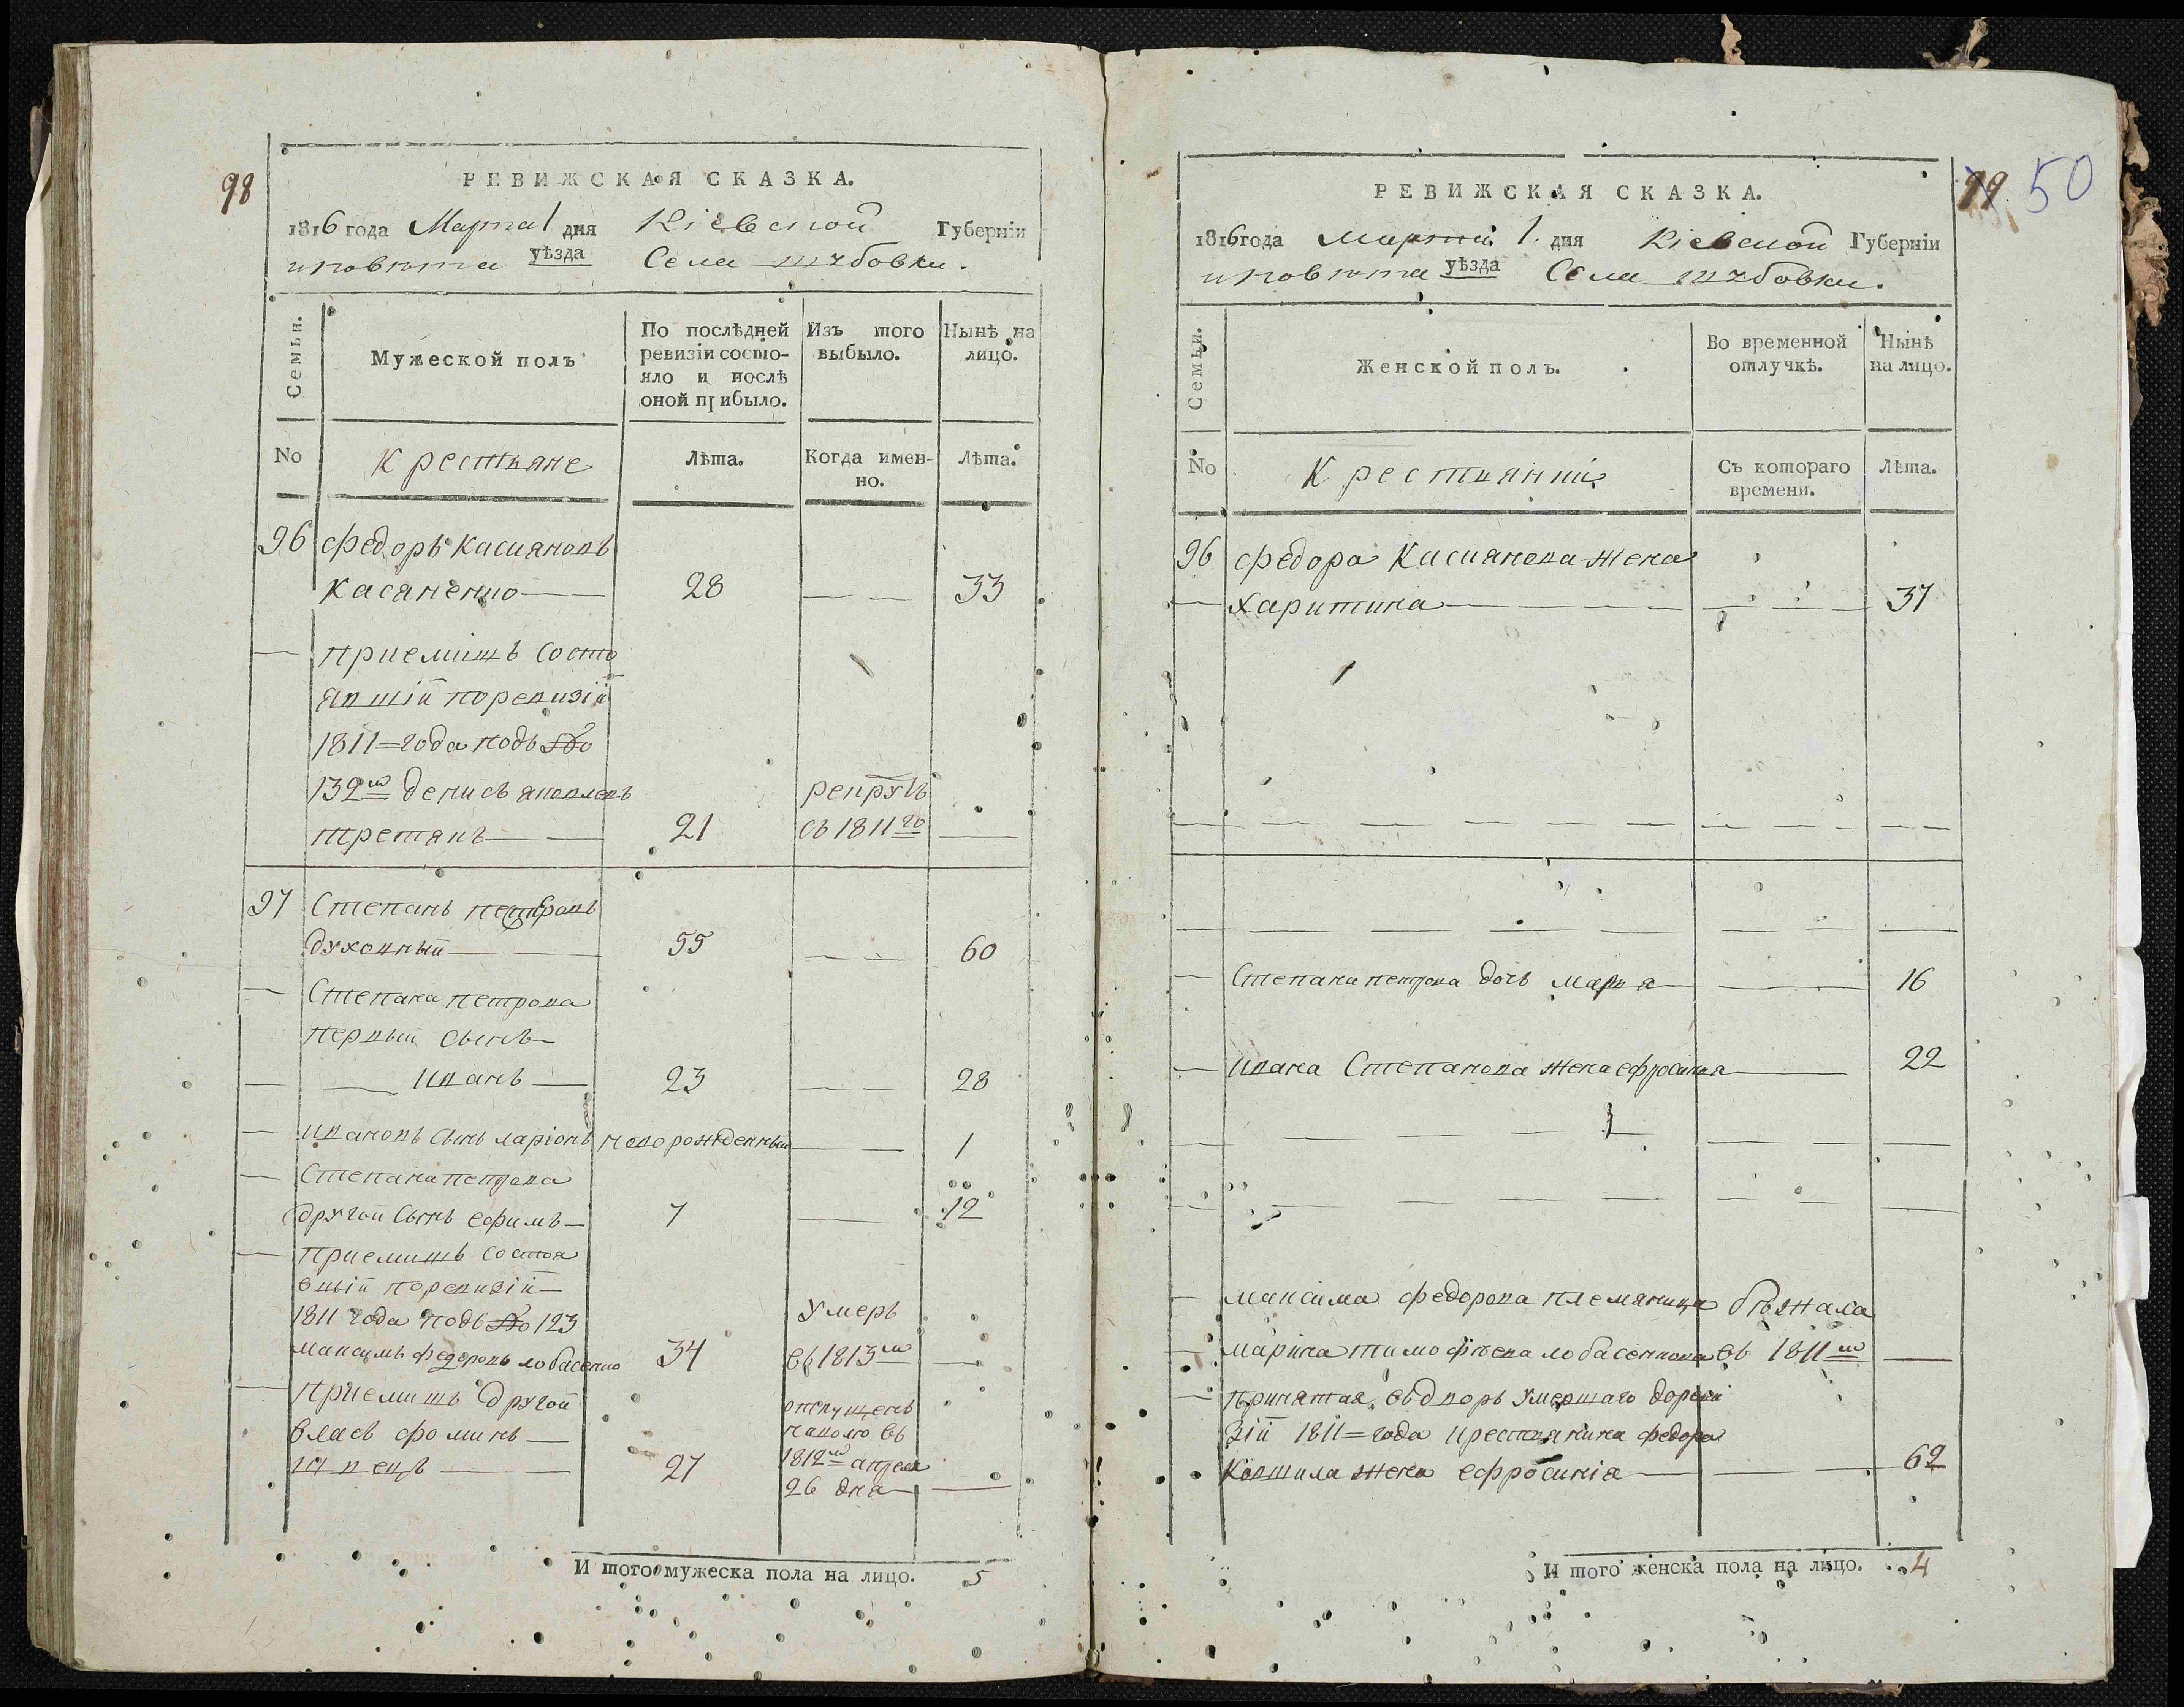 98
РЕВИЖСКАЯ СКАЗКА.
1816 года Марта 1 дня Кіевской Губерніи
и повѣта уѣзда Села
Семьи.
Мужеской полъ
По послѣдней ревизіи состо-
яло и послѣ
оной прибыло.
Изъ того
выбыло.
Нынѣ на
лицо.
No
Крестьяне
Лѣта.
Когда имен-
но.
Лѣта.
96 Федоръ Касиановъ
Касяненко 28 33
Приемишъ Состо
явшій по ревизіи
1811 = года подъ №
132м Денисъ Яковлевъ рекрутъ
третякъ 21 съ 1811го
97 Степанъ Петровъ
духовный 55 60
Степана Петрова
первый Сынъ
Иванъ 23 28
Ивановъ Сынъ Ларіонъ новорожденный 1
Степана Петрова
другой Сынъ Ефимъ 7 12
Приемишъ Состоя
вшій по ревизіи
1811 года подъ № 123 умеръ
Максимъ Федоровъ Лобасенко 34 въ 1813м
Приемишъ другой отпущенъ
Власъ Фоминъ на волю въ
27 1812м апреля
26 дня
Итого мужеска пола на лицо. 5
99. 50
РЕВИЖСКАЯ СКАЗКА.
1816 года Марта 1. дня Кіевской Губерніи
и повѣта уѣзда Села
Семьи.
Женской полъ.
Во временной
отлучкѣ.
Нынѣ
на лицо.
No
Крестьянки
Съ котораго
времени.
Лѣта.
96 Федора Касианова жена
Харитина 37
Степана Петрова дочь Марья 16
Ивана Степанова жена Ефросинья 22
Максима Федорова племяница бѣжала
Марина Тимофѣева Лобасенкова въ 1811м
Принятая въ дворъ умершаго до реви
зіи 1811 = года крестьянина Федора
Ковтила жена Ефросинія 62
Итого женска пола на лицо. 4